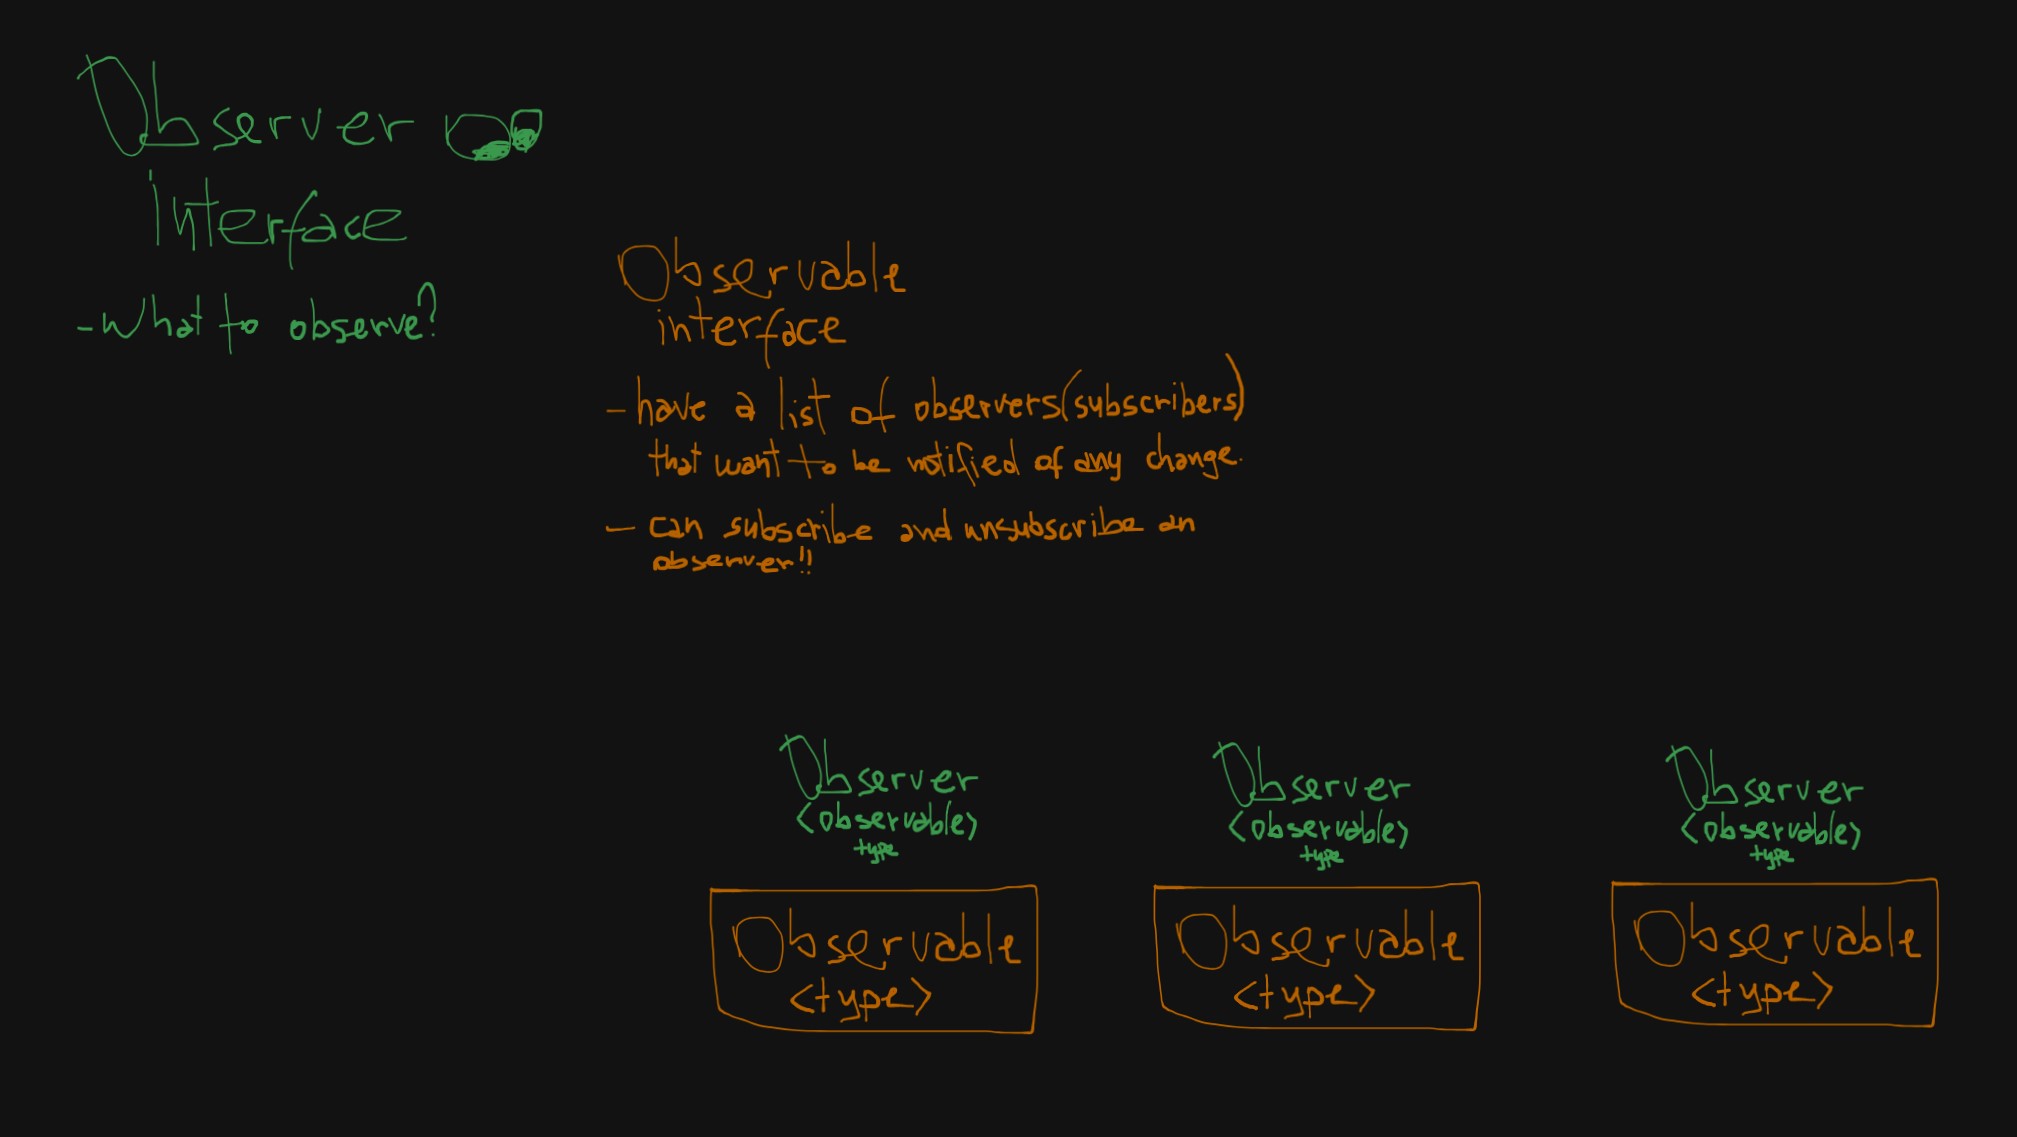 Observer
interface
-What to observe?
Observable
interface
- have a list of observers(subscribers)
that want to be notified of any change.
- can subscribe and unsubscribe an
observer!!
Observer
<observable>
type
Observable
<type>
Observer
<observable>
type
Observable
<type>
Observer
<observable>
type
Observable
<type>